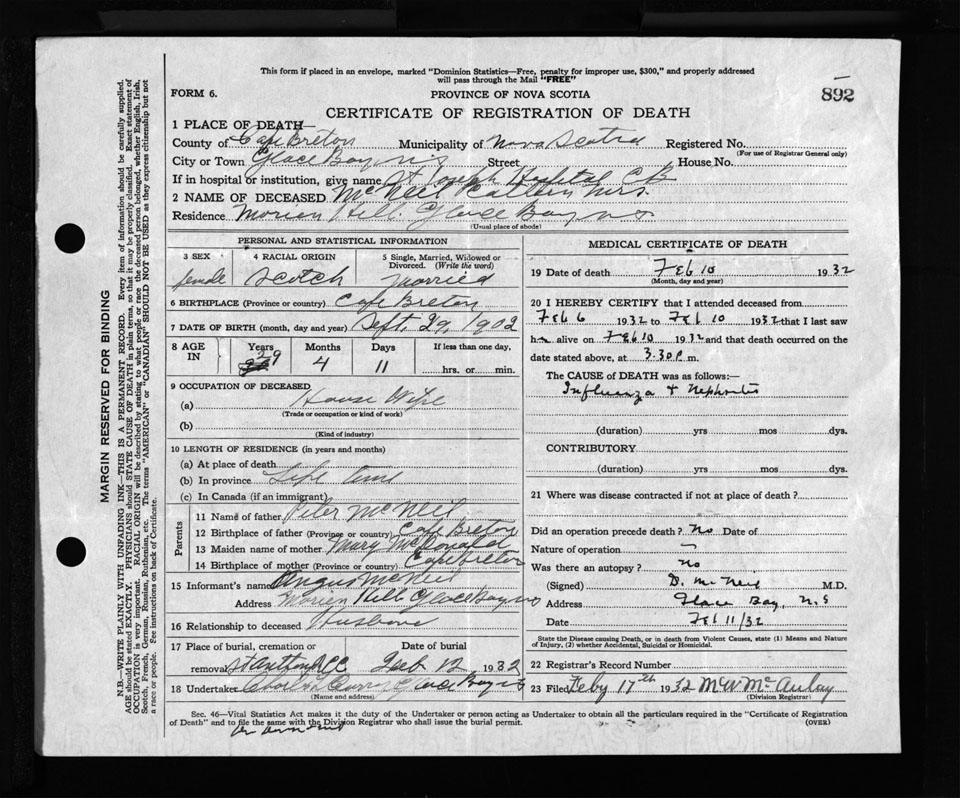 This form if placed in an envelope, marked "Dominion Statistics—Free, penalty for improper use, $300," and properly addressed
will pass through the Mail "FREE"
FORM 6.
PROVINCE OF NOVA SCOTIA
892
CERTIFICATE OF REGISTRATION OF DEATH
1 PLACE OF DEATH—
County of Cape Breton Municipality of Nova Scotia Registered No.
(For use of Registrar General only)
City or Town Glace Bay NS Street House No.
If in hospital or institution, give name St Joseph Hospital CB
2 NAME OF DECEASED McNeil Mrs.
Residence Morien Hill Glace Bay NS
(Usual place of abode)
PERSONAL AND STATISTICAL INFORMATION
3 SEX 4 RACIAL ORIGIN 5 Single, Married, Widowed or Divorced. (Write the word)
female Scotch Married
6 BIRTHPLACE (Province or country) Cape Breton
7 DATE OF BIRTH (month, day and year) Sept. 29, 1902
8 AGE IN Years Months Days If less than one day,
29 4 11 hrs. or min.
9 OCCUPATION OF DECEASED
(a) House Wife
(Trade or occupation or kind of work)
(b)
(Kind of industry)
10 LENGTH OF RESIDENCE (in years and months)
(a) At place of death
(b) In province Life time
(c) In Canada (if an immigrant)
Parents
11 Name of father Peter McNeil
12 Birthplace of father (Province or country) Cape Breton
13 Maiden name of mother Mary McDonald
14 Birthplace of mother (Province or country) Cape Breton
15 Informant's name Angus McNeil
Address Morien Hill Glace Bay NS
16 Relationship to deceased Husband
17 Place of burial, cremation or Date of burial
removal St Anthony Feb 12 1932
18 Undertaker Glace Bay NS
(Name and address)
MEDICAL CERTIFICATE OF DEATH
19 Date of death Feb 10 1932
(Month, day and year)
20 I HEREBY CERTIFY that I attended deceased from
Feb 6 1932 to Feb 10 1932 that I last saw
h alive on Feb 10 1932 and that death occurred on the
date stated above, at 3.30 P. m.
The CAUSE of DEATH was as follows:—
Influenza + Nephritis
(duration) yrs mos dys.
CONTRIBUTORY
(duration) yrs mos dys.
21 Where was disease contracted if not at place of death?
Did an operation precede death? No Date of
Nature of operation —
Was there an autopsy? No
(Signed) D. McNeil M.D.
Address Glace Bay, N.S
Date Feb 11/32
State the Disease causing Death, or in death from Violent Causes, state (1) Means and Nature
of Injury, (2) whether Accidental, Suicidal or Homicidal.
22 Registrar's Record Number
23 Filed Feby 17th 1932 McAulay
(Division Registrar)
Sec. 46—Vital Statistics Act makes it the duty of the Undertaker or person acting as Undertaker to obtain all the particulars required in the "Certificate of Registration
of Death" and to file the same with the Division Registrar who shall issue the burial permit. (OVER)
MARGIN RESERVED FOR BINDING
N.B.—WRITE PLAINLY WITH UNFADING INK—THIS IS A PERMANENT RECORD. Every item of information should be carefully supplied.
AGE should be stated EXACTLY. PHYSICIANS should STATE CAUSE OF DEATH in plain terms, so that it may be properly classified. Exact statement of
OCCUPATION is very important. RACIAL ORIGIN will be described by stating to what people or race the deceased person belonged, whether English, Irish,
Scotch, French, German, Russian, Ruthenian, etc. The terms "AMERICAN" or "CANADIAN" SHOULD NOT BE USED as they express citizenship but not
a race or people. See instructions on back of Certificate.